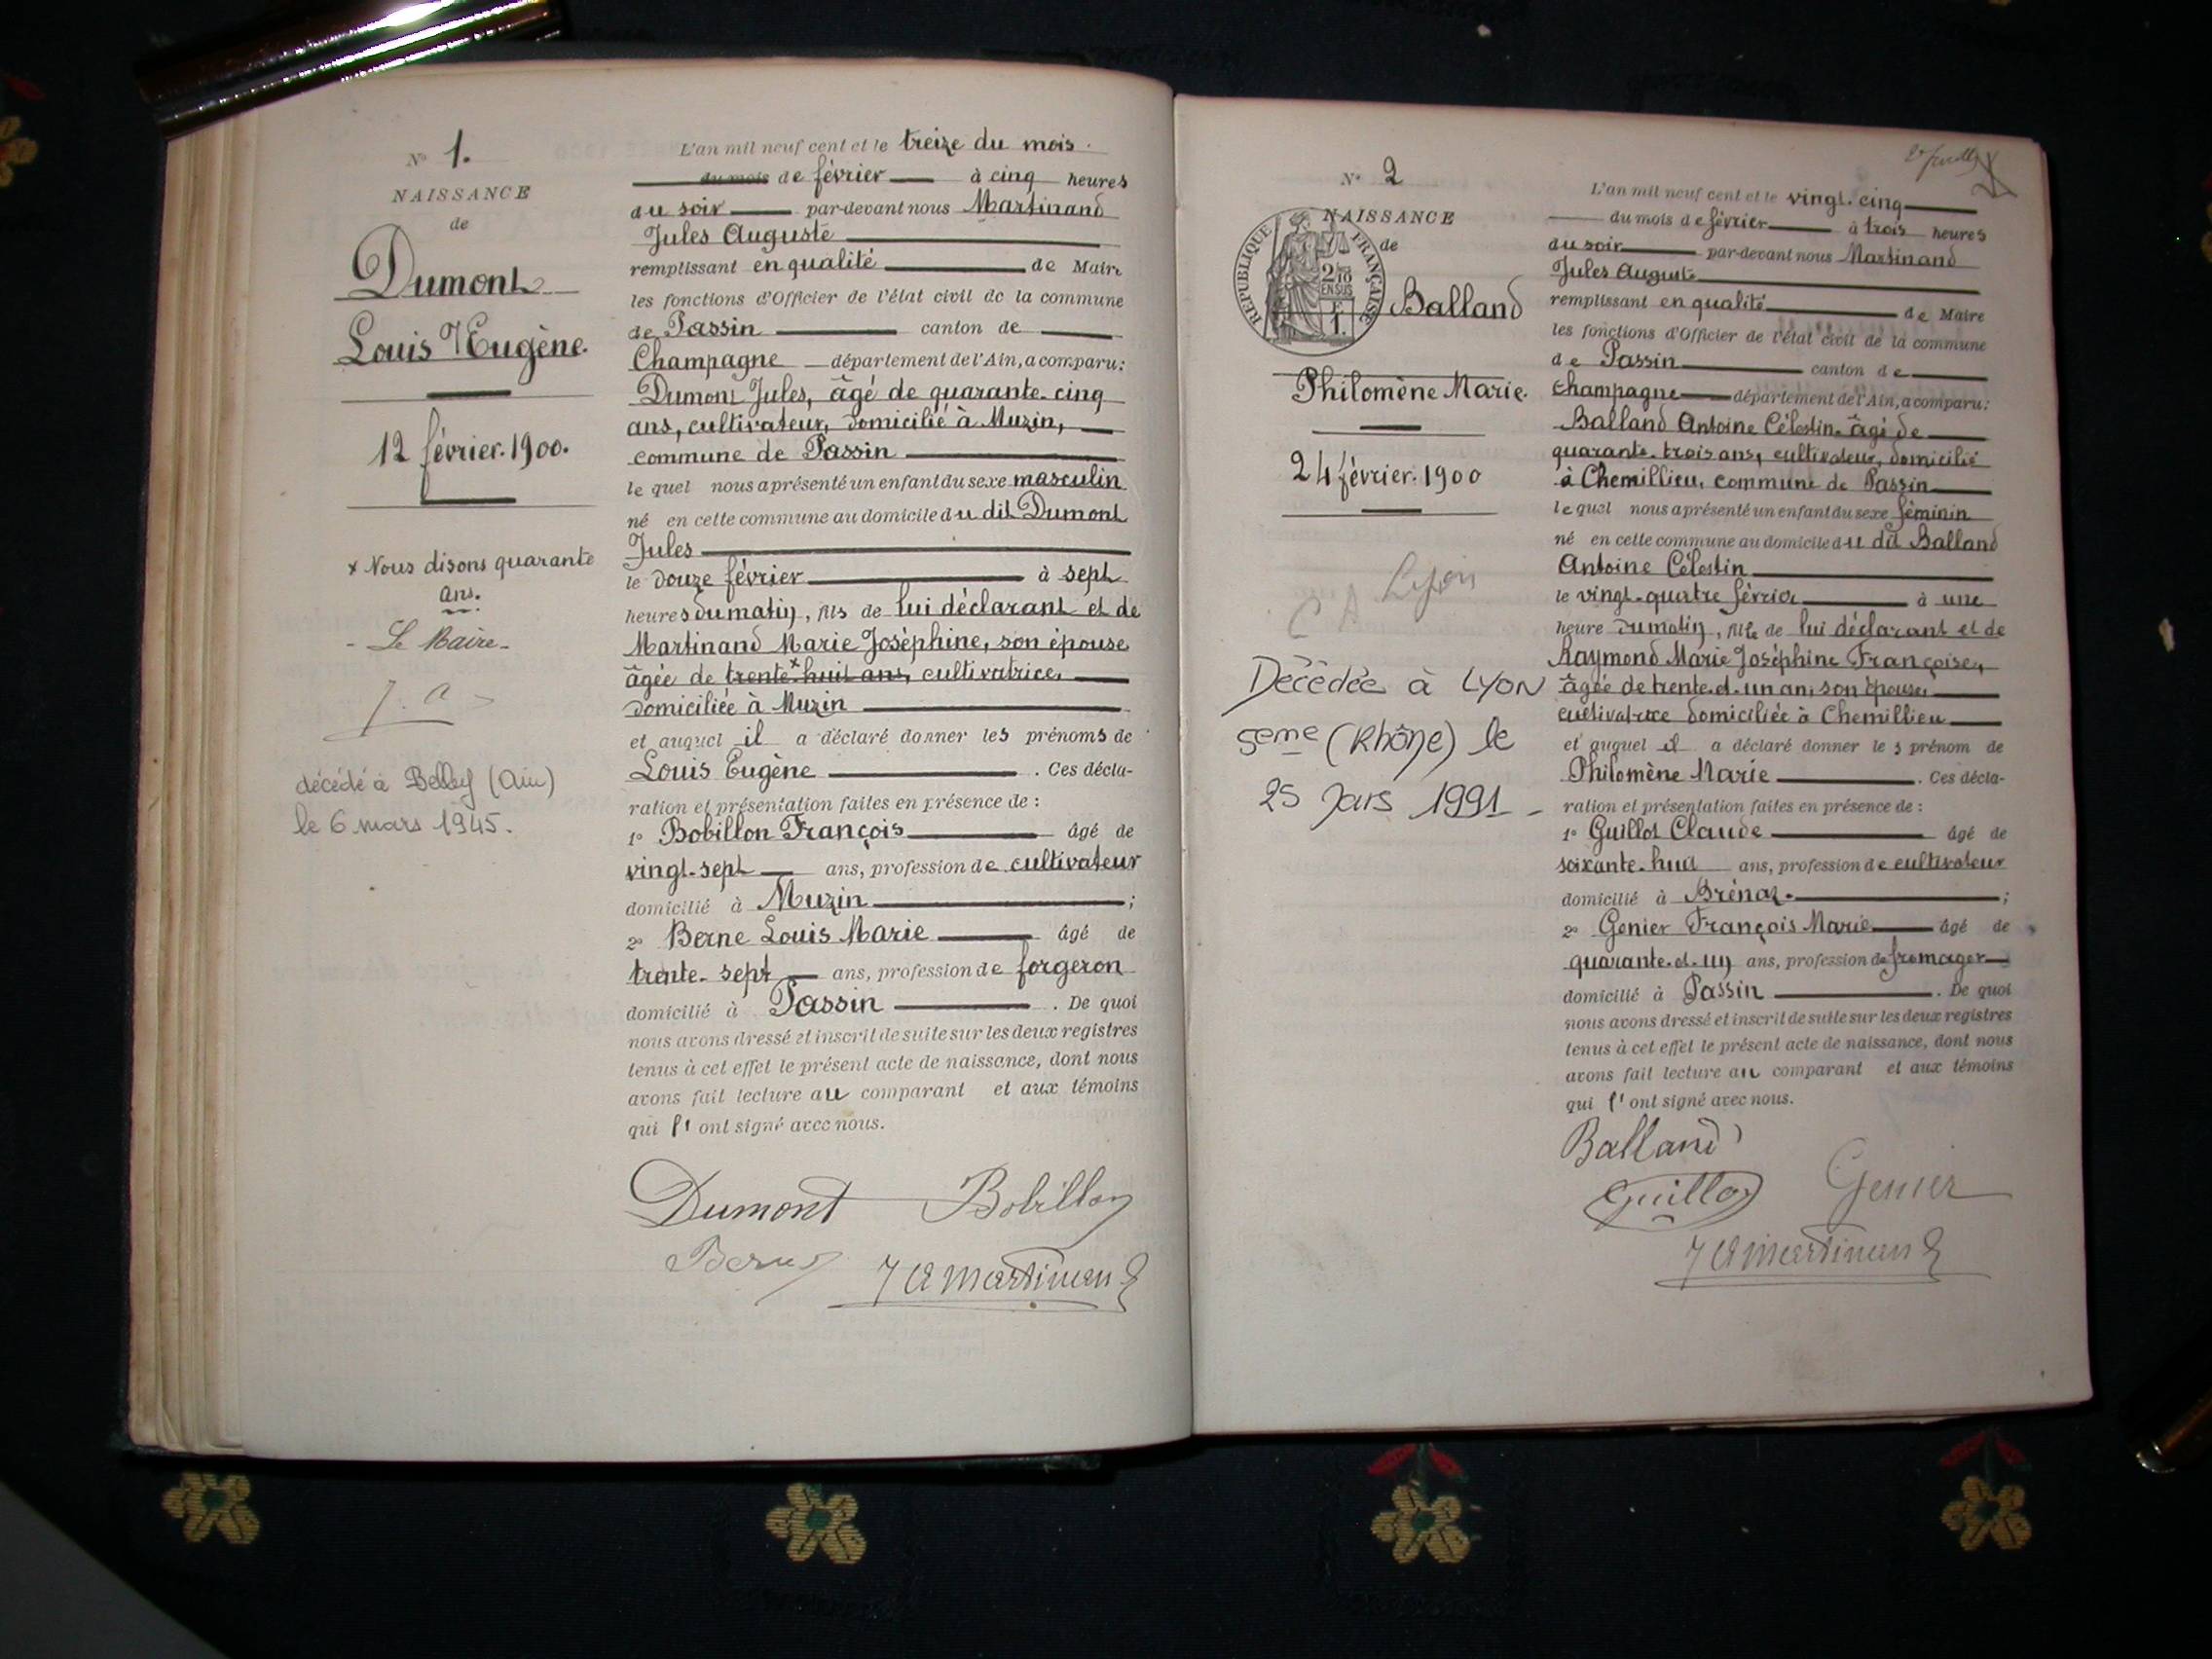 N° 1.
NAISSANCE
de
Dumont
Louis Eugène.
12 février. 1900.
x Nous disons quarante
ans.
- Le Maire -
J. A
décédé à Belley (Ain)
le 6 mars 1945.
L'an mil neuf cent et le treize du mois
du mois de février à cinq heures
du soir par-devant nous Martinand
Jules Auguste
remplissant en qualité de Maire
les fonctions d'Officier de l'état civil de la commune
de Passin canton de
Champagne département de l'Ain, a comparu:
Dumont Jules, âgé de quarante-cinq
ans, cultivateur, domicilié à Muzin,
commune de Passin
le quel nous a présenté un enfant du sexe masculin
né en cette commune au domicile du dit Dumont
Jules
le douze février à sept
heures du matin, fils de lui déclarant et de
Martinand Marie Joséphine, son épouse
âgée de trente x huit ans, cultivatrice,
domiciliée à Muzin
et auquel il a déclaré donner les prénoms de
Louis Eugène . Ces décla-
ration et présentation faites en présence de :
1° Bobillon François âgé de
vingt-sept ans, profession de cultivateur
domicilié à Muzin ;
2° Berne Louis Marie âgé de
trente-sept ans, profession de forgeron
domicilié à Passin . De quoi
nous avons dressé et inscrit de suite sur les deux registres
tenus à cet effet le présent acte de naissance, dont nous
avons fait lecture au comparant et aux témoins
qui l'ont signé avec nous.
Dumont Bobillon
Berne J A Martinand
N° 2
NAISSANCE
de
RÉPUBLIQUE FRANÇAISE
2/10
EN SUS
F
1.
Balland
Philomène Marie.
24 février. 1900
Lyon
Décédée à LYON
5eme (Rhône) le
25 Mars 1991 -
L'an mil neuf cent et le vingt-cinq
du mois de février à trois heures
du soir par-devant nous Martinand
Jules Auguste
remplissant en qualité de Maire
les fonctions d'Officier de l'état civil de la commune
de Passin canton de
Champagne département de l'Ain, a comparu:
Balland Antoine Célestin âgé de
quarante-trois ans, cultivateur, domicilié
à Chemillieu, commune de Passin
le quel nous a présenté un enfant du sexe féminin
né en cette commune au domicile du dit Balland
Antoine Célestin
le vingt-quatre février à une
heure du matin, fille de lui déclarant et de
Raymond Marie Joséphine Françoise,
âgée de trente-et-un an, son épouse,
cultivatrice domiciliée à Chemillieu
et auquel il a déclaré donner les prénom de
Philomène Marie . Ces décla-
ration et présentation faites en présence de :
1° Guillot Claude âgé de
soixante-huit ans, profession de cultivateur
domicilié à Brénaz. ;
2° Genier François Marie âgé de
quarante-et-un ans, profession de fromager
domicilié à Passin . De quoi
nous avons dressé et inscrit de suite sur les deux registres
tenus à cet effet le présent acte de naissance, dont nous
avons fait lecture au comparant et aux témoins
qui l'ont signé avec nous.
Balland
Guillot Genier
J A Martinand